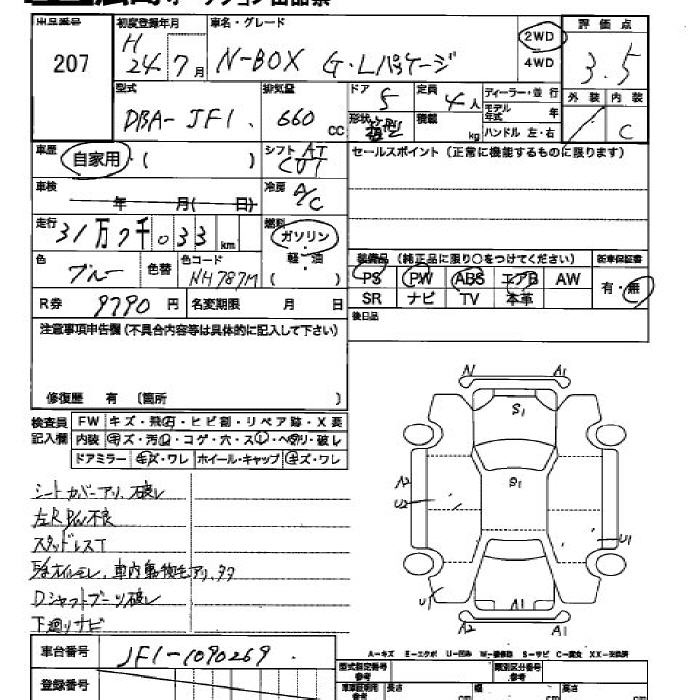 出品番号 初度登録年月 車名・グレード 評価点
207 H 24年 7月 N-BOX G・Lパッケージ 2WD 4WD 3.5
型式 排気量 ドア 定員 ディーラー・並行 外装 内装
DBA-JF1 660 CC 5 4人 モデル年式 年
形状 積載 kg ハンドル 左・右 C
車歴 自家用・( ) シフト AT CVT セールスポイント(正常に機能するものに限ります)
車検 年 月( 日) 冷房 A/C
走行 31万7千033km 燃料 ガソリン・軽・油 ( )
色 ブルー 色替 色コード NH787M
装備品(純正品に限り○をつけてください) 新車保証書
PS PW ABS エアB AW 有・無
SR ナビ TV 本革
R券 9790円 名変期限 月 日 後日品
注意事項申告欄(不具合内容等は具体的に記入して下さい)
修復歴 有 〔箇所 〕
検査員記入欄 FW キズ・飛石・ヒビ割・リペア跡・X要
内装 キズ・汚れ・コゲ・穴・スレ・ヘタリ・破レ
ドアミラー キズ・ワレ ホイール・キャップ キズ・ワレ
シートカバーアリ、破レ
左R P/W不良
スタッドレスT
オイルモレ、車内動物毛アリ、タタ
Dシャフトブーツ破レ
下廻りサビ
A1
S1
S1
A2
U2
U1
U1
A1
A2 A1
車台番号 JF1-1090269
A-キズ E-エクボ U-凹み W-補修跡 S-サビ C-腐食 XX-交換済
登録番号
型式指定番号 参考 類別区分番号 参考
長さ cm 幅 cm 高さ cm